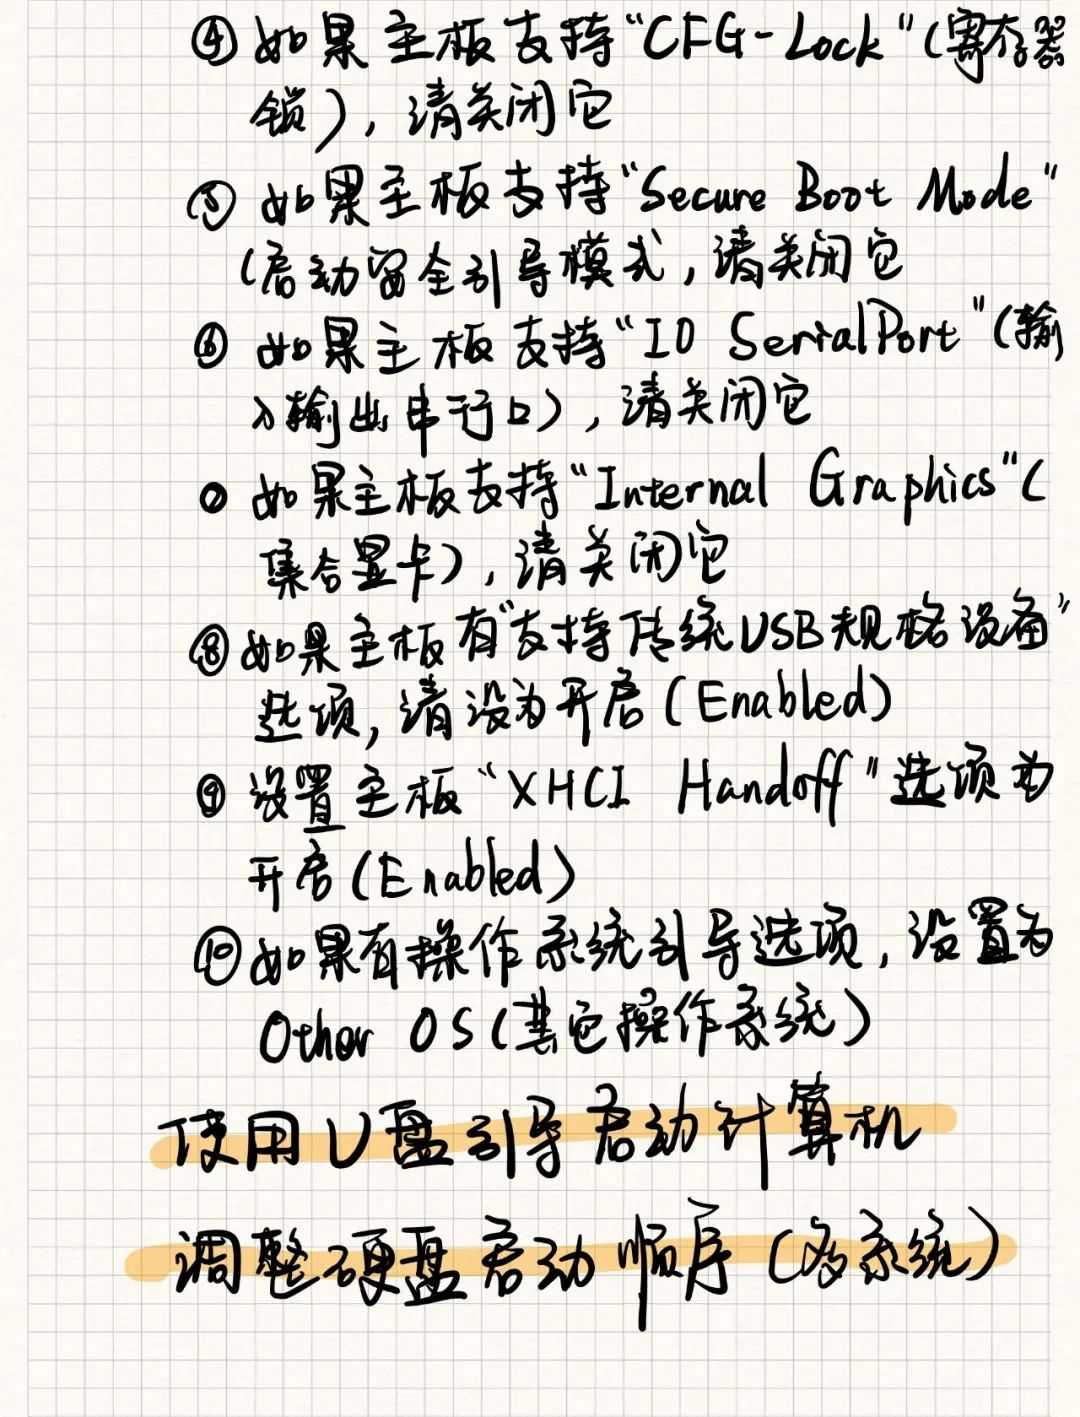 ④如果主板支持“CFG-Lock”(寄存器
锁),请关闭它
⑤如果主板支持“Secure Boot Mode”
(启动留全引导模式,请关闭它
⑥如果主板支持“IO SerialPort”(输
入输出串行口),请关闭它
⑦如果主板支持“Internal Graphics”(
集合显卡),请关闭它
⑧如果主板有“支持传统USB规格设备”
选项,请设为开启(Enabled)
⑨设置主板“XHCI Handoff”选项为
开启(Enabled)
⑩如果有操作系统引导选项,设置为
Other OS(其它操作系统)
使用U盘引导启动计算机
调整硬盘启动顺序(多系统)